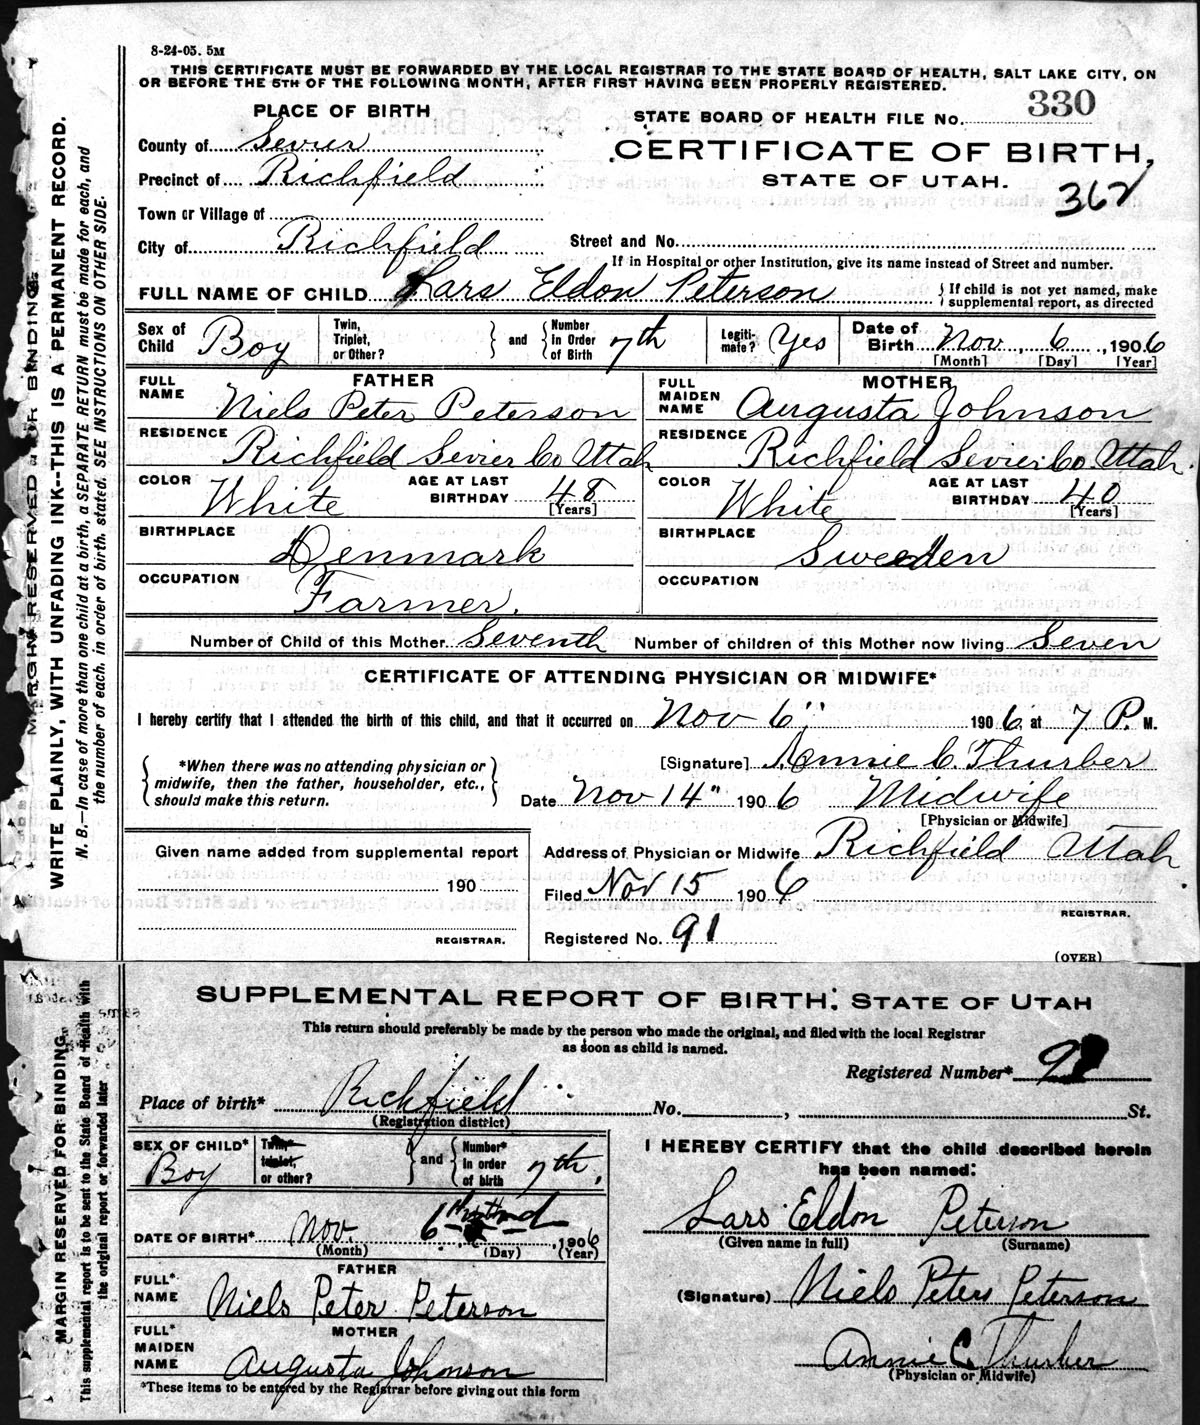 8-24-05. 5M
THIS CERTIFICATE MUST BE FORWARDED BY THE LOCAL REGISTRAR TO THE STATE BOARD OF HEALTH, SALT LAKE CITY, ON
OR BEFORE THE 5TH OF THE FOLLOWING MONTH, AFTER FIRST HAVING BEEN PROPERLY REGISTERED.
PLACE OF BIRTH
STATE BOARD OF HEALTH FILE No. 330
County of Sevier
CERTIFICATE OF BIRTH,
Precinct of Richfield
STATE OF UTAH.
362
Town or Village of
City of Richfield
Street and No.
If in Hospital or other Institution, give its name instead of Street and number.
FULL NAME OF CHILD Lars Eldon Peterson
} If child is not yet named, make
supplemental report, as directed
Sex of Child Boy
Twin, Triplet, or Other? } and { Number In Order of Birth 7th
Legiti-mate? Yes
Date of Birth Nov, 6, 1906
[Month] [Day] [Year]
FATHER
FULL NAME Niels Peter Peterson
RESIDENCE Richfield Sevier Co Utah
COLOR White AGE AT LAST BIRTHDAY 48 [Years]
BIRTHPLACE Denmark
OCCUPATION Farmer.
MOTHER
FULL MAIDEN NAME Augusta Johnson
RESIDENCE Richfield Sevier Co. Utah.
COLOR White AGE AT LAST BIRTHDAY 40 [Years]
BIRTHPLACE Sweden
OCCUPATION
Number of Child of this Mother. Seventh Number of children of this Mother now living Seven
CERTIFICATE OF ATTENDING PHYSICIAN OR MIDWIFE*
I hereby certify that I attended the birth of this child, and that it occurred on Nov 6" 1906, at 7 P. M.
{ *When there was no attending physician or
midwife, then the father, householder, etc.,
should make this return. }
[Signature] Annie C. Thurber
Date Nov 14" 1906 Midwife
[Physician or Midwife]
Given name added from supplemental report
190
REGISTRAR.
Address of Physician or Midwife Richfield Utah
Filed Nov 15 1906
REGISTRAR.
Registered No. 91
(OVER)
MARGIN RESERVED FOR BINDING.
WRITE PLAINLY, WITH UNFADING INK--THIS IS A PERMANENT RECORD.
N. B.—In case of more than one child at a birth, a SEPARATE RETURN must be made for each, and
the number of each, in order of birth, stated. SEE INSTRUCTIONS ON OTHER SIDE.
SUPPLEMENTAL REPORT OF BIRTH: STATE OF UTAH
This return should preferably be made by the person who made the original, and filed with the local Registrar
as soon as child is named.
Registered Number* 91
Place of birth* Richfield No. , St.
(Registration district)
SEX OF CHILD* Boy
Twin,* triplet, or other? } and { Number* In order of birth 7th,
DATE OF BIRTH* Nov. 6 1906
(Month) (Day) (Year)
FATHER
FULL* NAME Niels Peter Peterson
MOTHER
FULL* MAIDEN NAME Augusta Johnson
*These items to be entered by the Registrar before giving out this form
I HEREBY CERTIFY that the child described herein
has been named:
Lars Eldon Peterson
(Given name in full) (Surname)
(Signature) Niels Peters Peterson
Annie C Thurber
(Physician or Midwife)
MARGIN RESERVED FOR BINDING.
This supplemental report is to be sent to the State Board of Health with
the original report or forwarded later